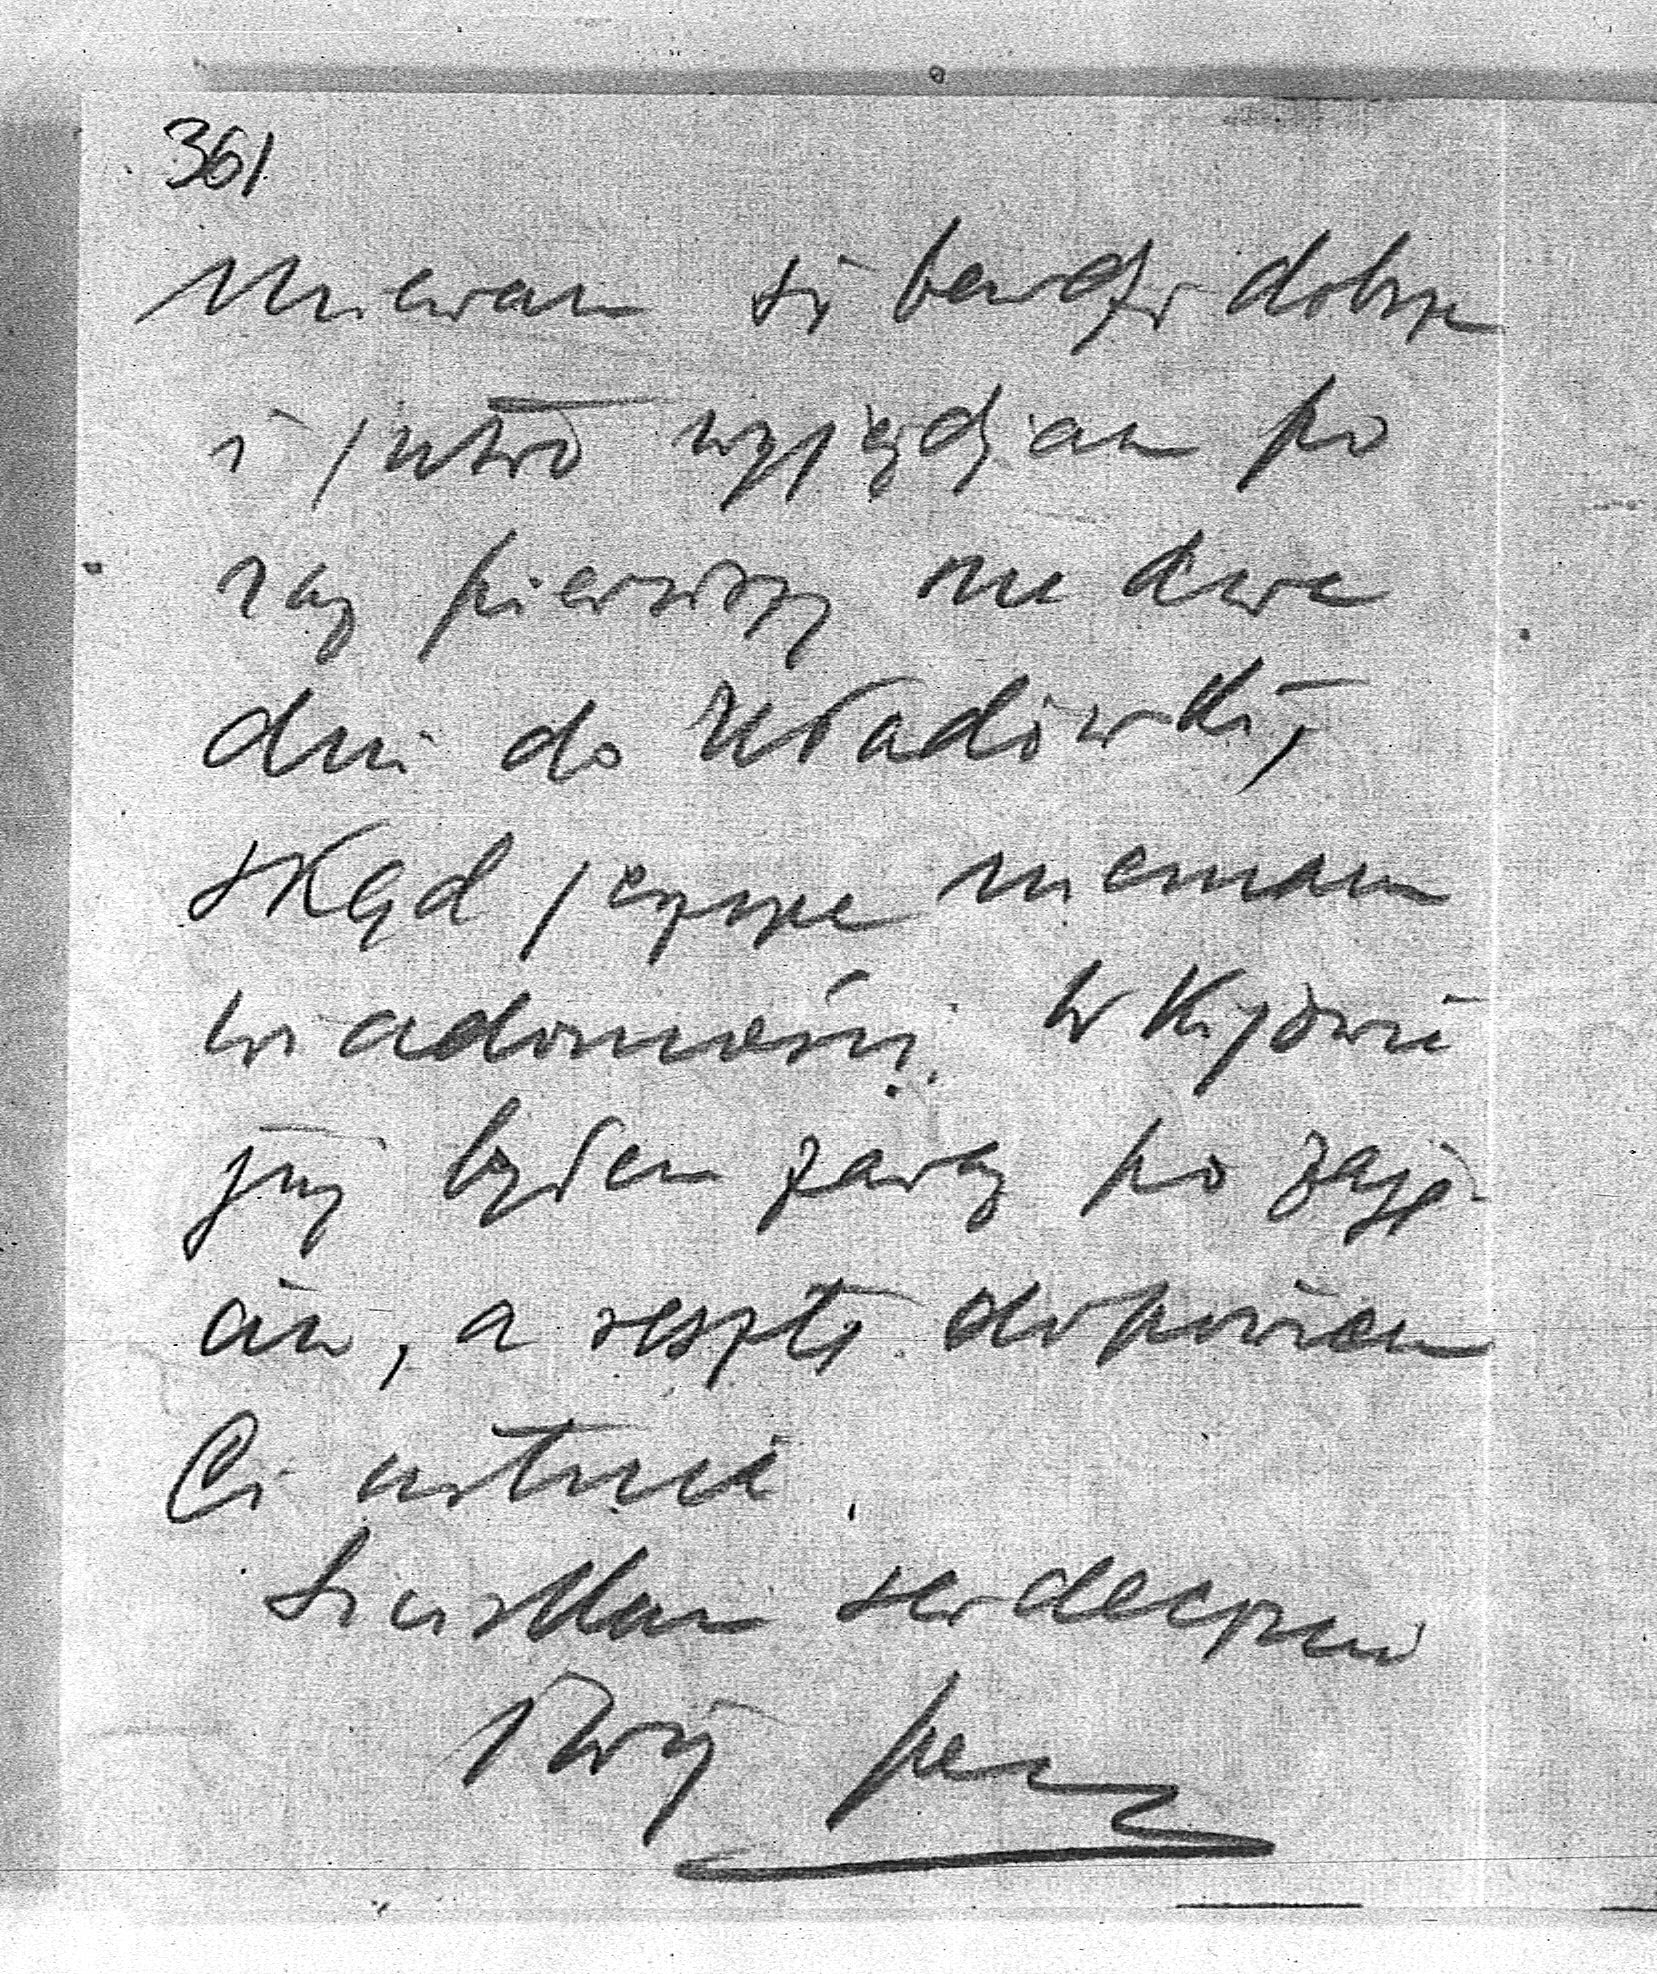 361
Miewam się bardzo dobrze
i jutro wyjeżdżam po
raz pierwszy na dwa
dni do Uładówki,
skąd jeszcze niemam
wiadomości. W Kijowie
już byłem zaraz po zaję-
ciu, a resztę dopowiem
Ci ustnie.
Sciskam serdecznie
Twój